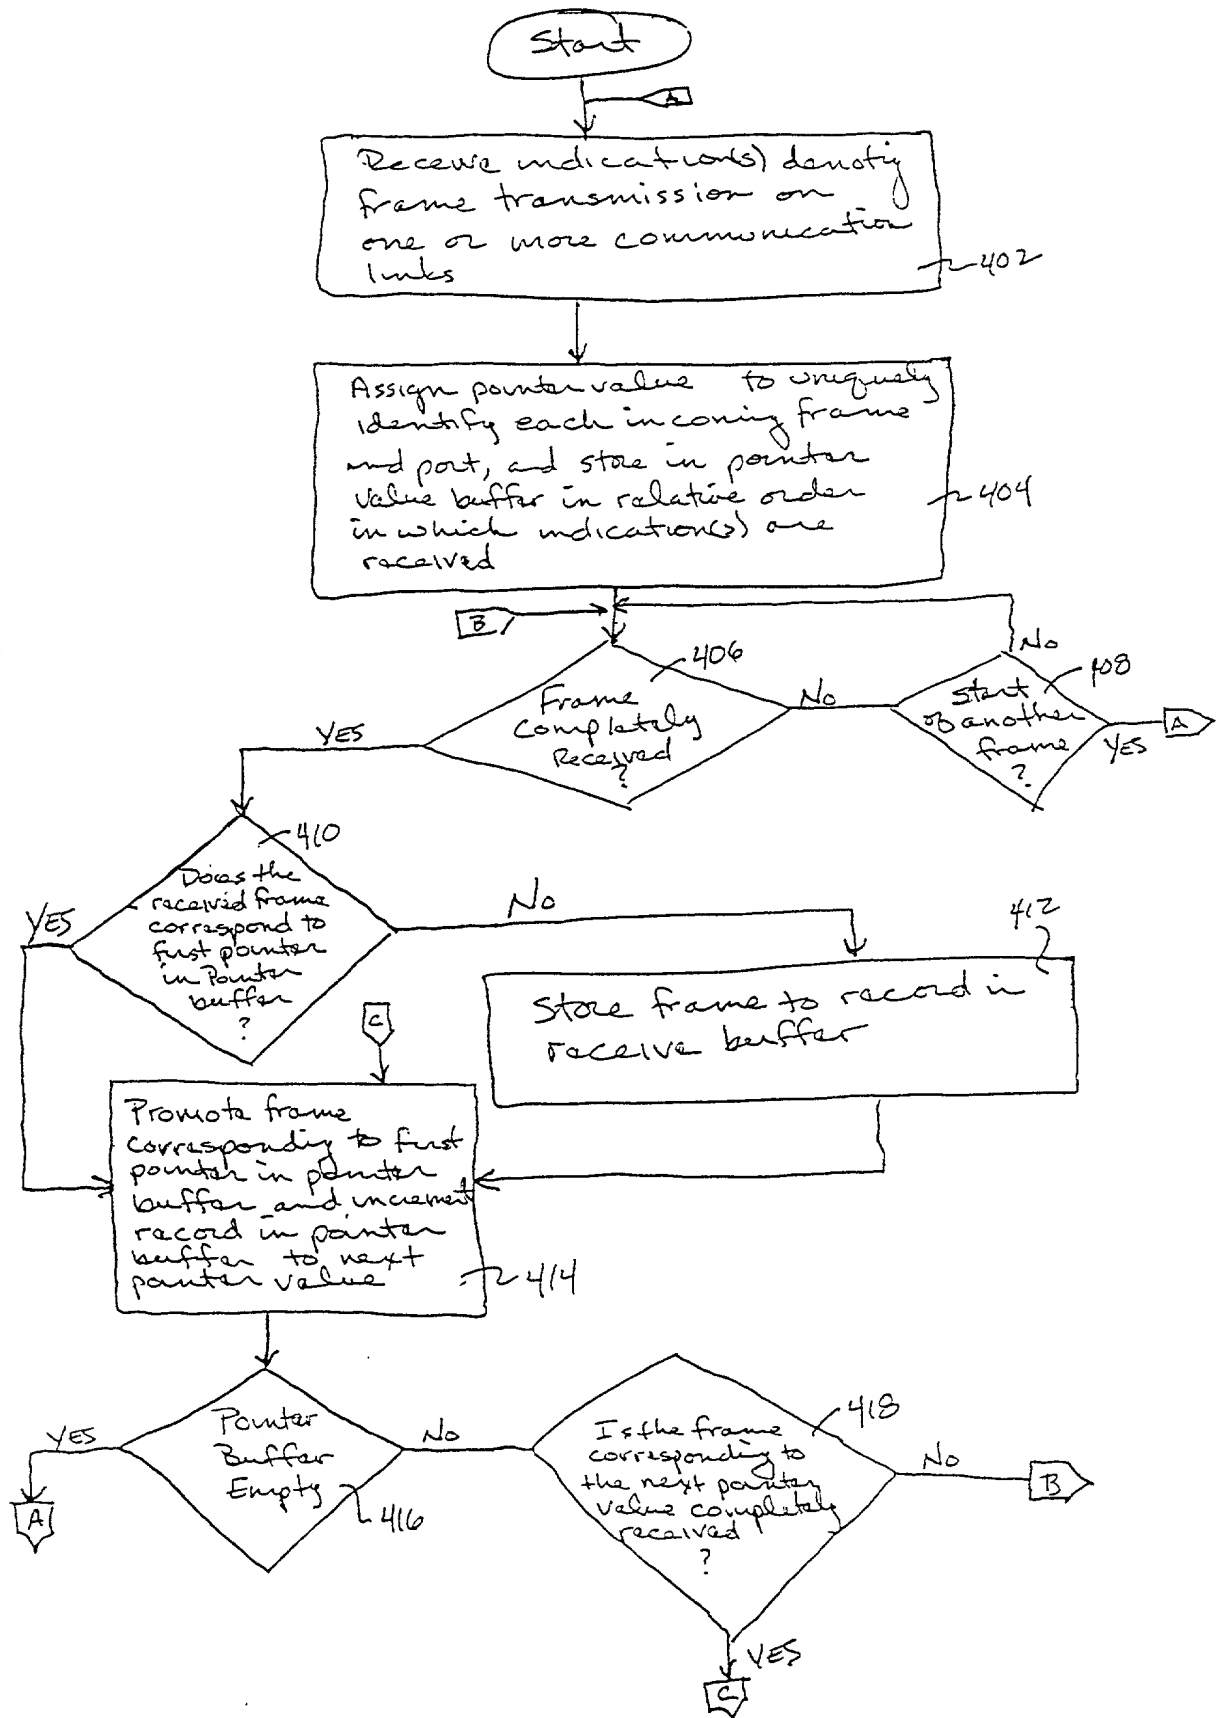 Start
A
Receive indication(s) denoting
frame transmission on
one or more communication
links
402
Assign pointer value to uniquely
identify each incoming frame
and port, and store in pointer
value buffer in relative order
in which indication(s) are
received
404
B
406
Frame
Completely
Received
?
YES
No
No
408
Start
of another
frame
?
YES
A
410
Does the
received frame
correspond to
first pointer
in Pointer
buffer
?
YES
No
412
Store frame to record in
receive buffer
C
Promote frame
corresponding to first
pointer in pointer
buffer and increment
record in pointer
buffer to next
pointer value
414
Pointer
Buffer
Empty
416
YES
A
No
418
Is the frame
corresponding to
the next pointer
value completely
received
?
No
B
YES
C